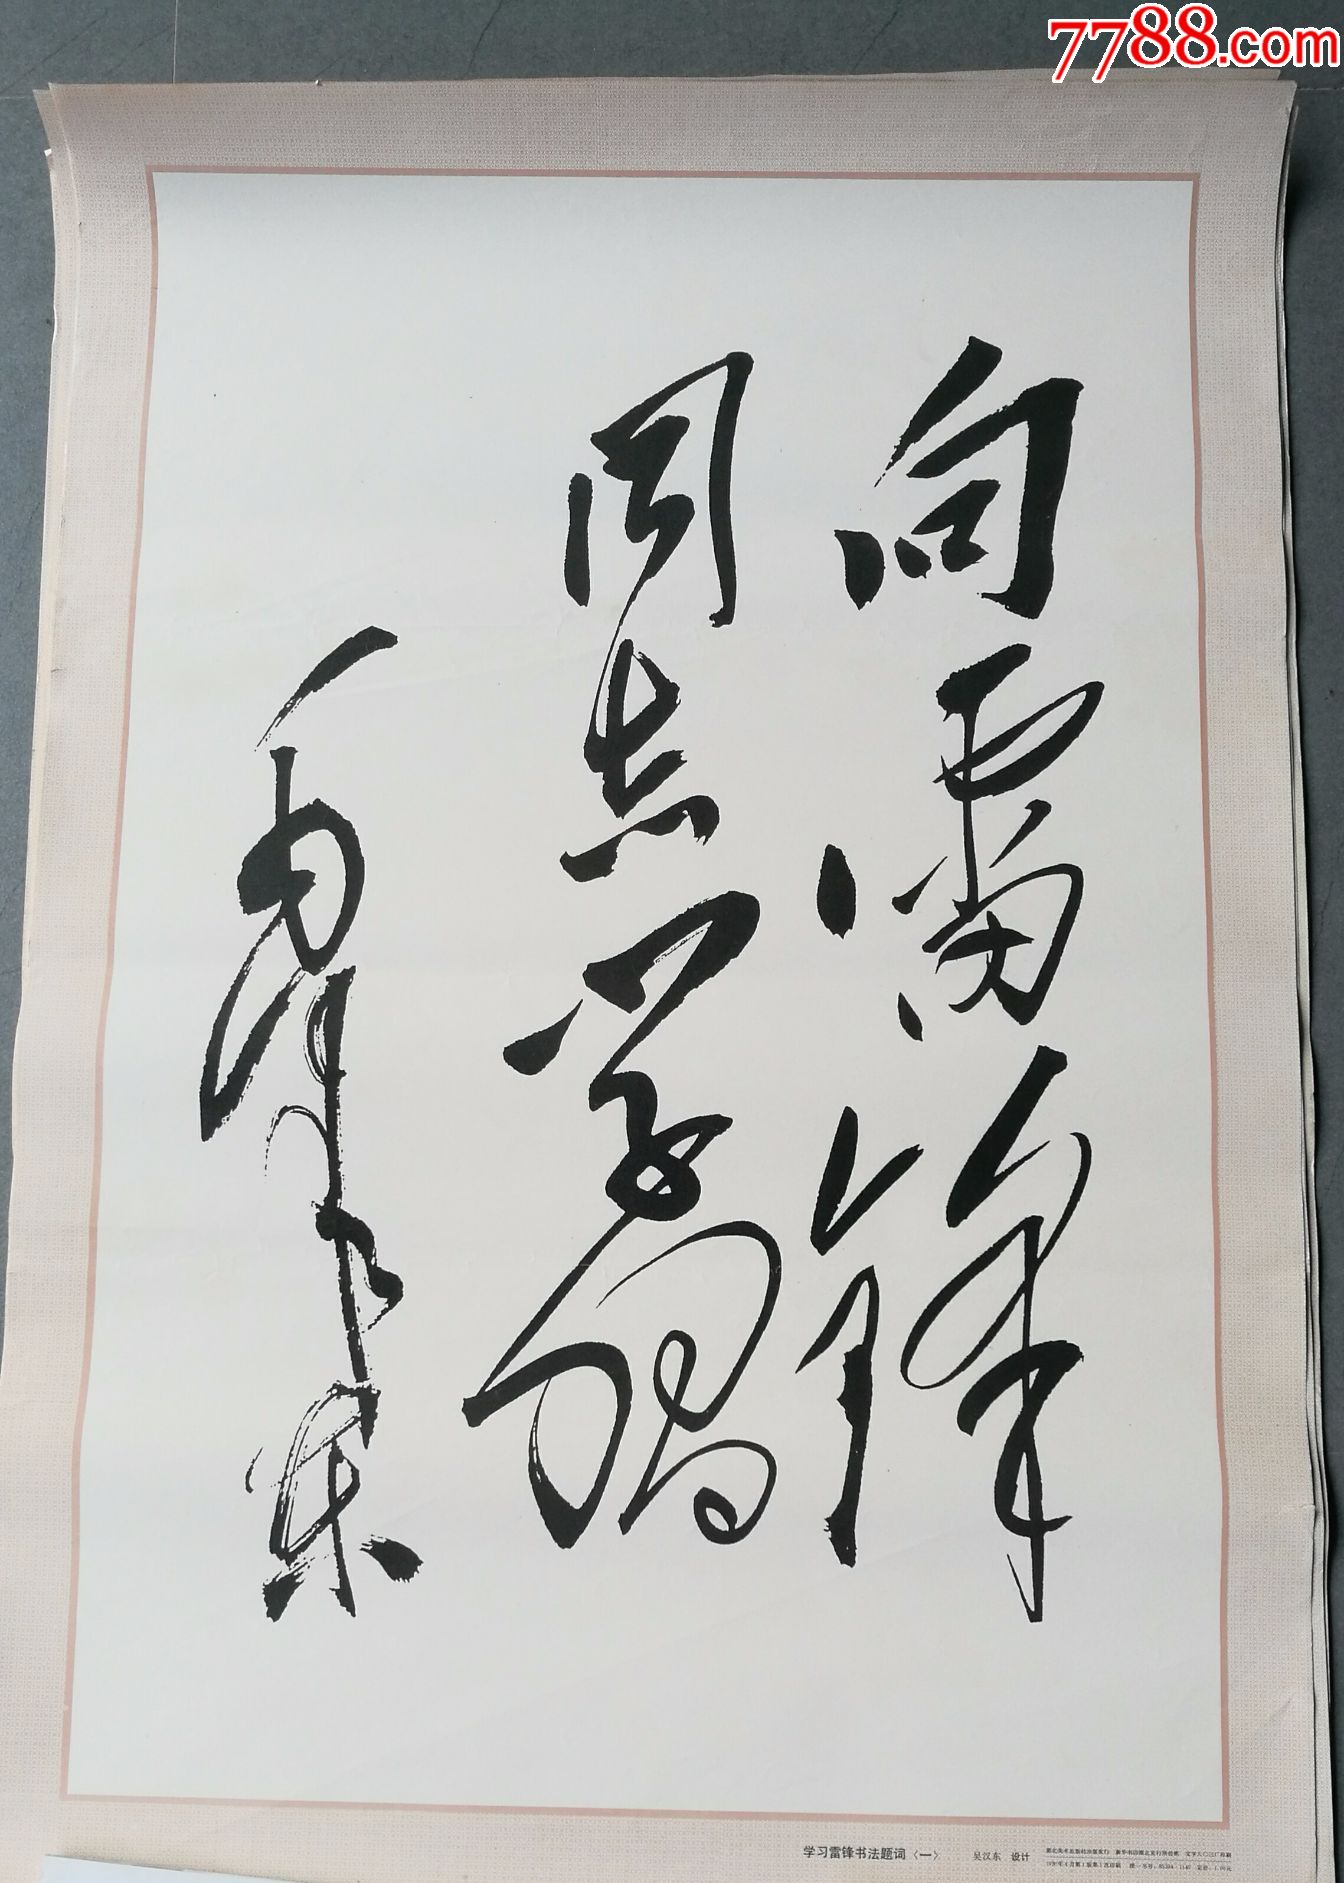 7788.com
向雷锋
同志学习
毛泽东
学习雷锋书法题词〈一〉 吴汉东 设计